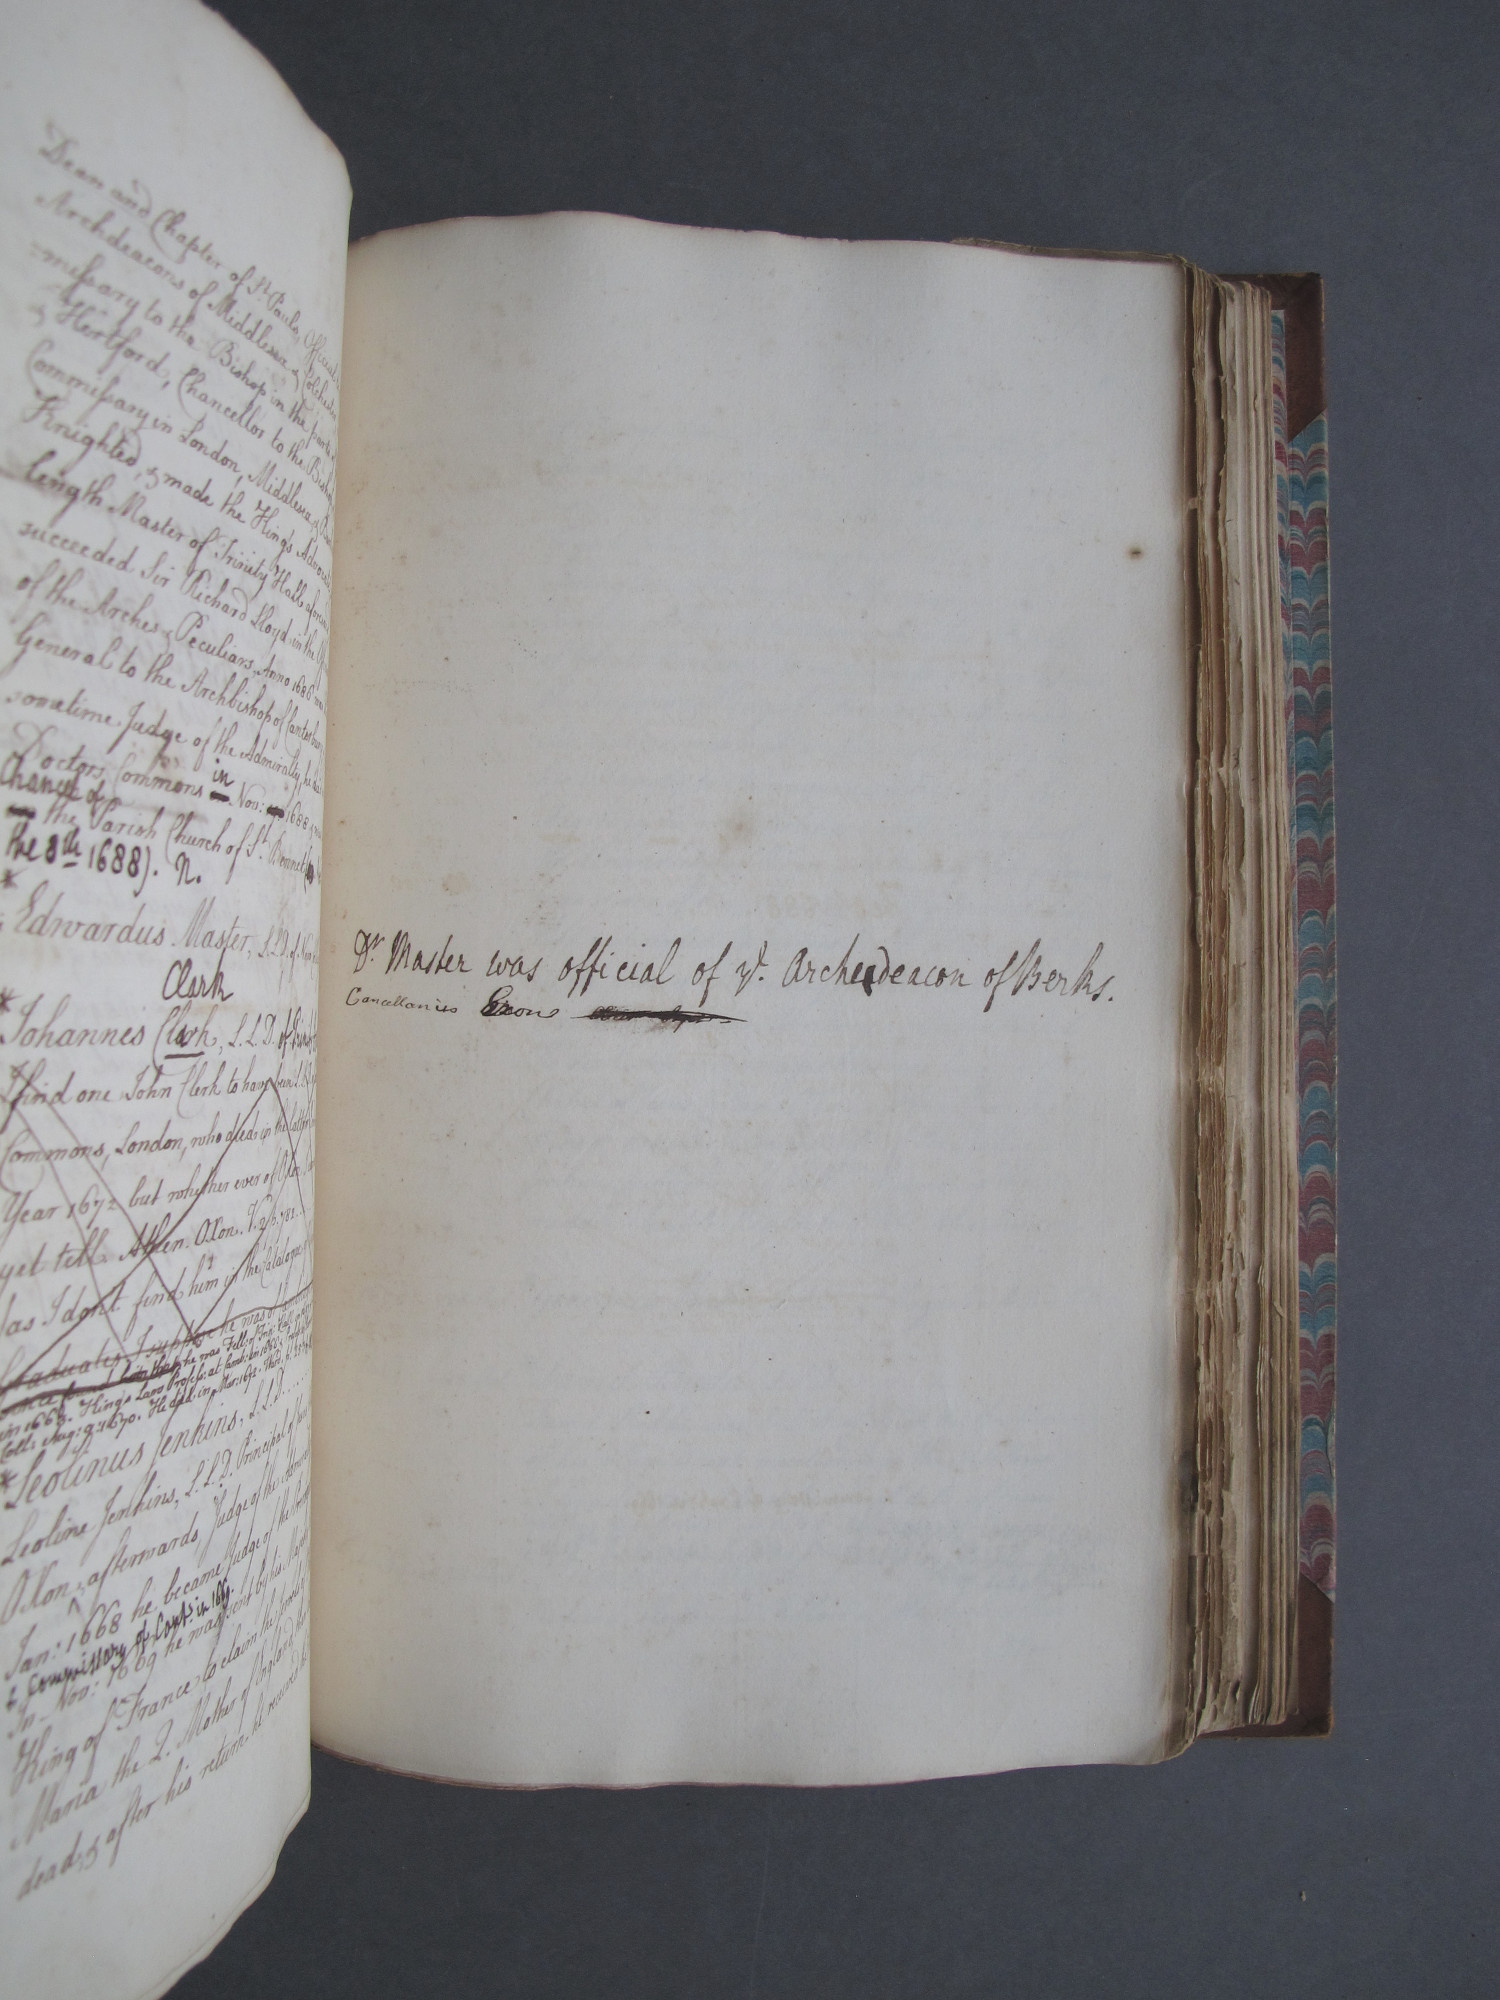 Dean and Chapter of St. Pauls, Official
Archdeacons of Middlesex & Colchester
-missary to the Bishop in the parts
& Hertford, Chancellor to the Bishop
Commissary in London, Middlesex, &
Knighted, & made the Kings Advocate
length Master of Trinity Hall
succeeded Sir Richard Lloyd in the
of the Arches & Peculiars, Anno 1686 was
General to the Archbishop of Canterbury
sometime Judge of the Admiralty, he
Doctors Commons in Nov: 1688 &
Chancel of
the Parish Church of St. Bennet
the 8th 1688). N.
* Edwardus Master, L.L.D. of New
Clark
* Johannes Clark, L.L.D. of
I find one John Clerk to have been L.L.D.
Commons, London, who died in the latter
Year 1672 but whether ever of Oxon.
yet tell Athen. Oxon. V. 2. p. 782.
as I dont find him in the Catalogue
Graduates I suppose he was of
he was Fell: of Trin: Hall
in 1666. Kings Law Profess: at Camb: in 1666
Coll: Aug: 9: 1670. He died in Mar: 1672.
* Leolinus Jenkins, L.L.D.....
Leoline Jenkins, L.L.D. Principal of
Oxon, afterwards, Judge of the
Jan: 1668 he became Judge of the
& Commissary of Cant. in 1669.
In Nov: 1669 he was sent by his
King of France to claim the
Maria the Q. Mother of England
dead, & after his return, he received
Dr. Master was official of ye. Archdeacon of Berks.
Cancellarius Exon